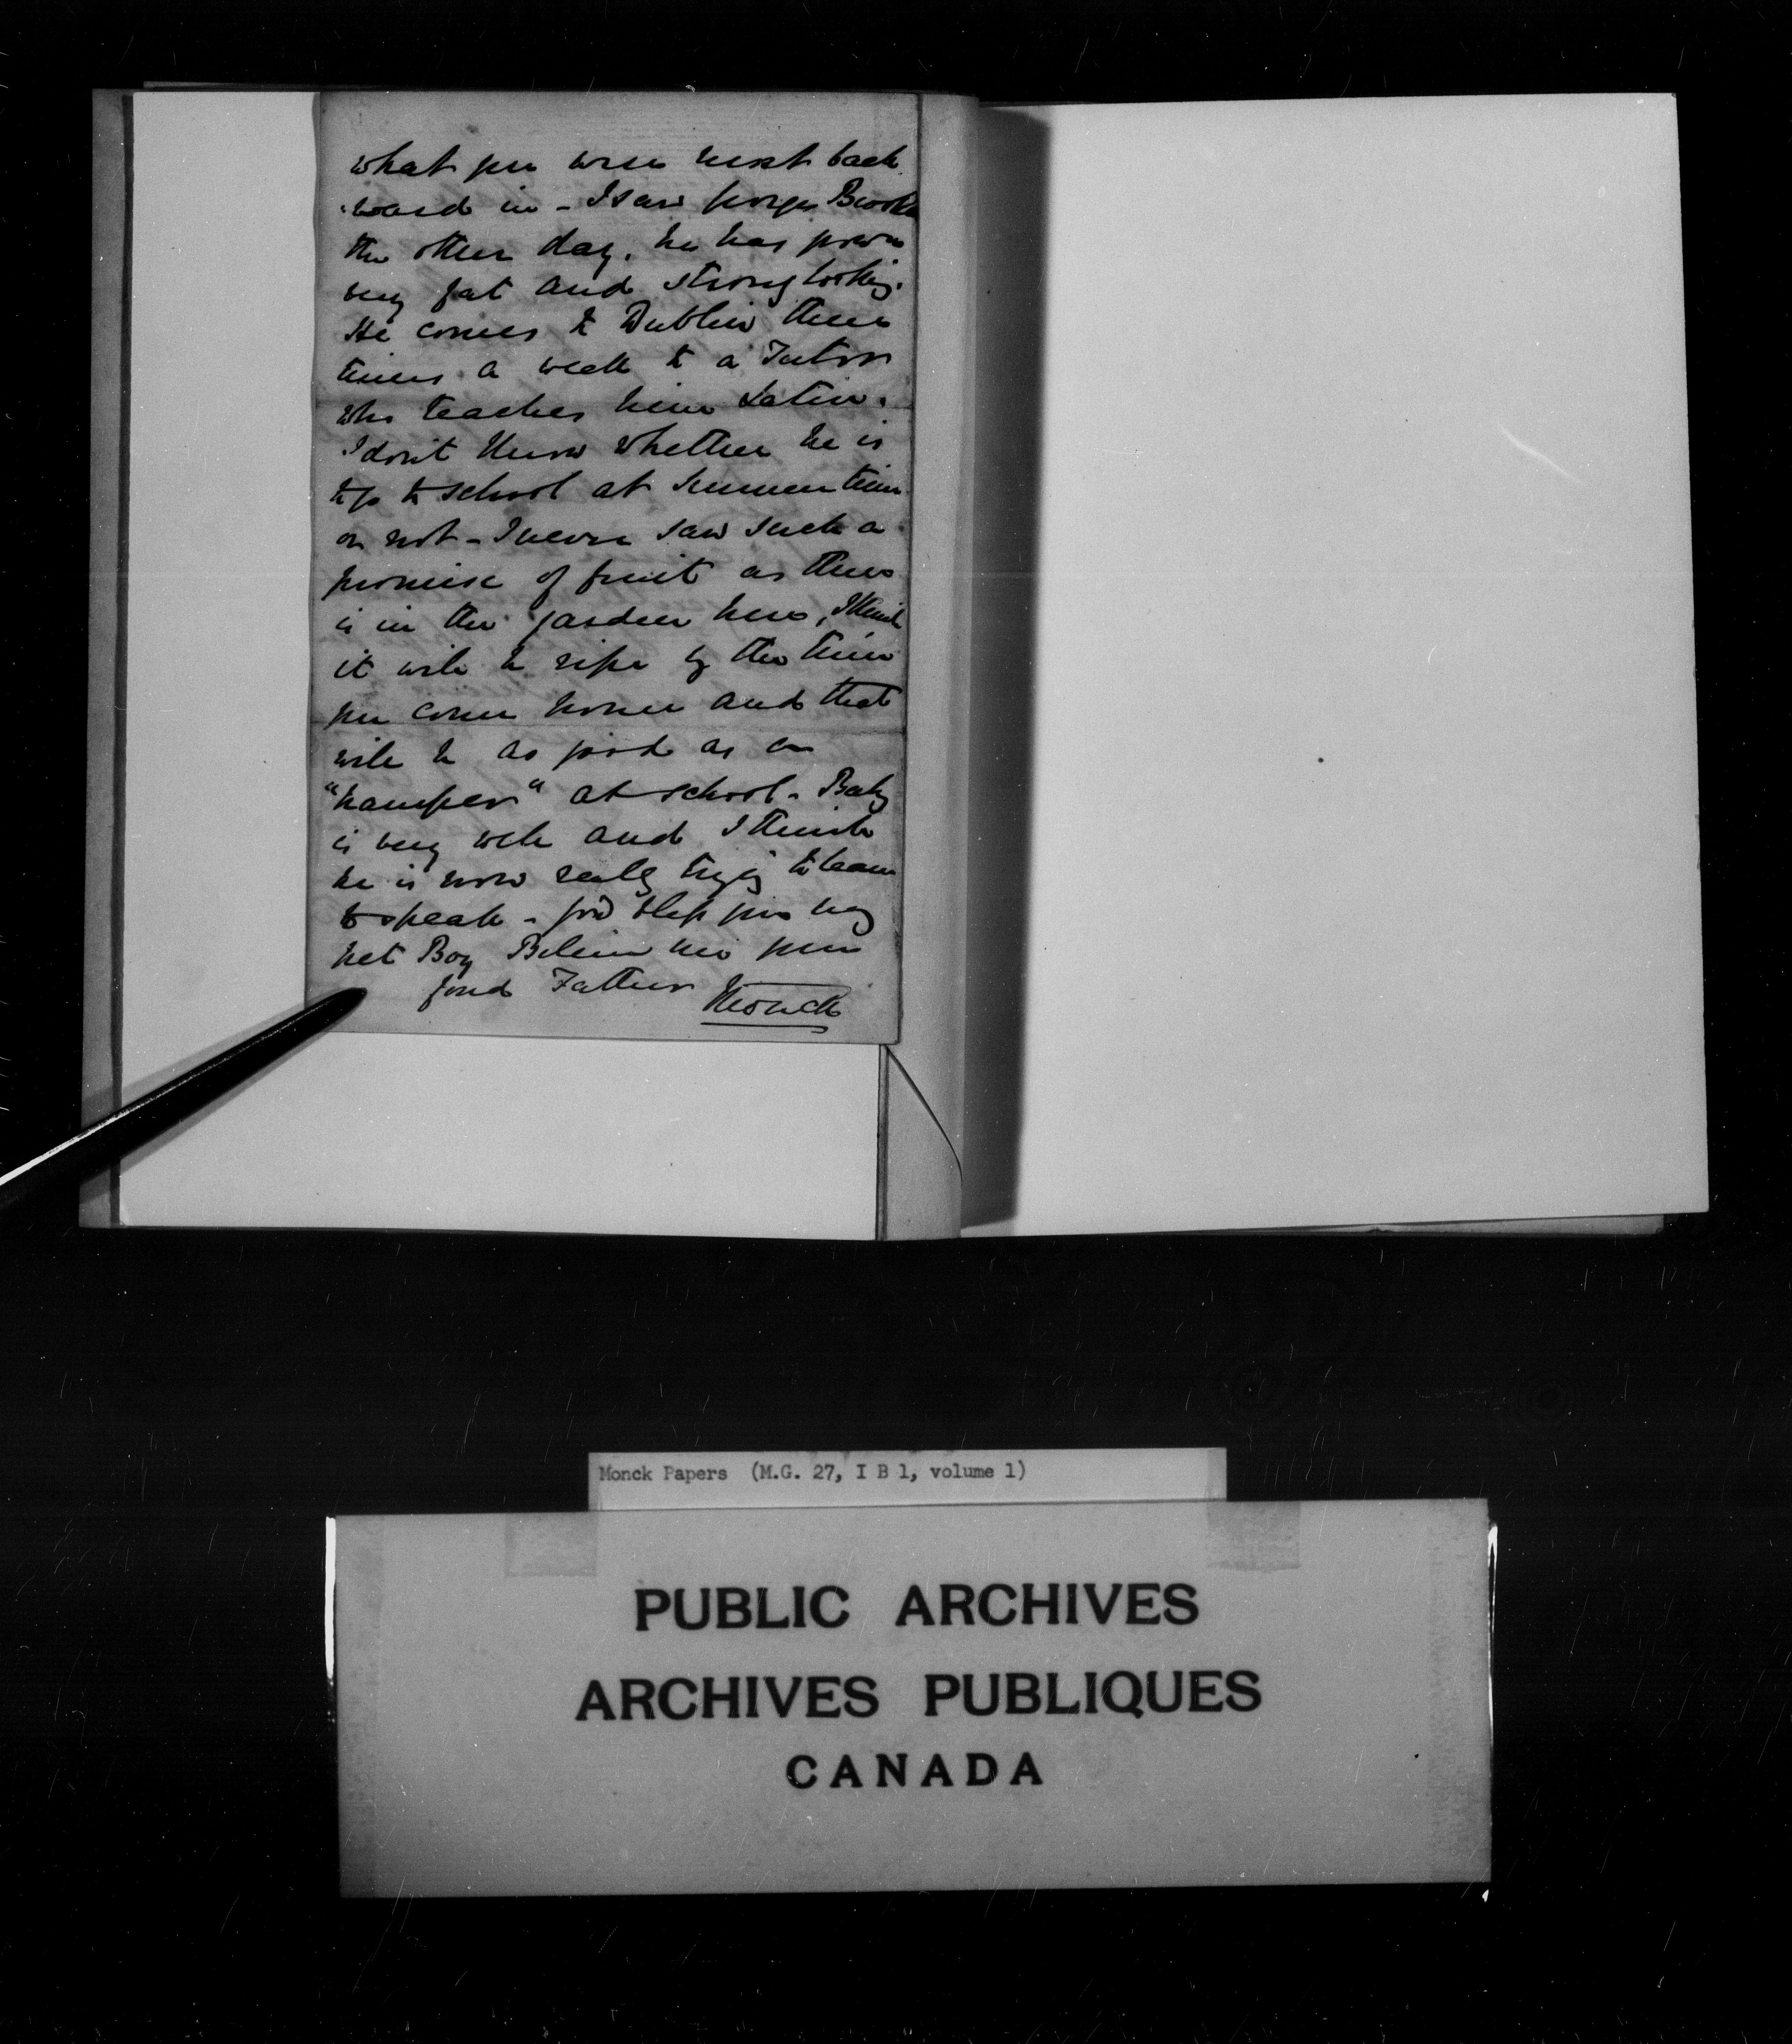 what you were most back
ward in - I saw George Brooke
the other day, he has grown
very fat and strong looking.
He comes to Dublin three
times a week to a Tutor
who teaches him Latin.
I don't know whether he is
to go to school at Summer time
or not - I never saw such a
promise of fruit as there
is in the garden here, I think
it will be ripe by the time
you come home and that
will be as good as a
"hamper" at school - Baby
is very well and I think
he is now really trying to learn
to speak - God bless you my
pet Boy Believe me your
fond Father Monck
Monck Papers (M.G. 27, I B 1, volume 1)
PUBLIC ARCHIVES
ARCHIVES PUBLIQUES
CANADA